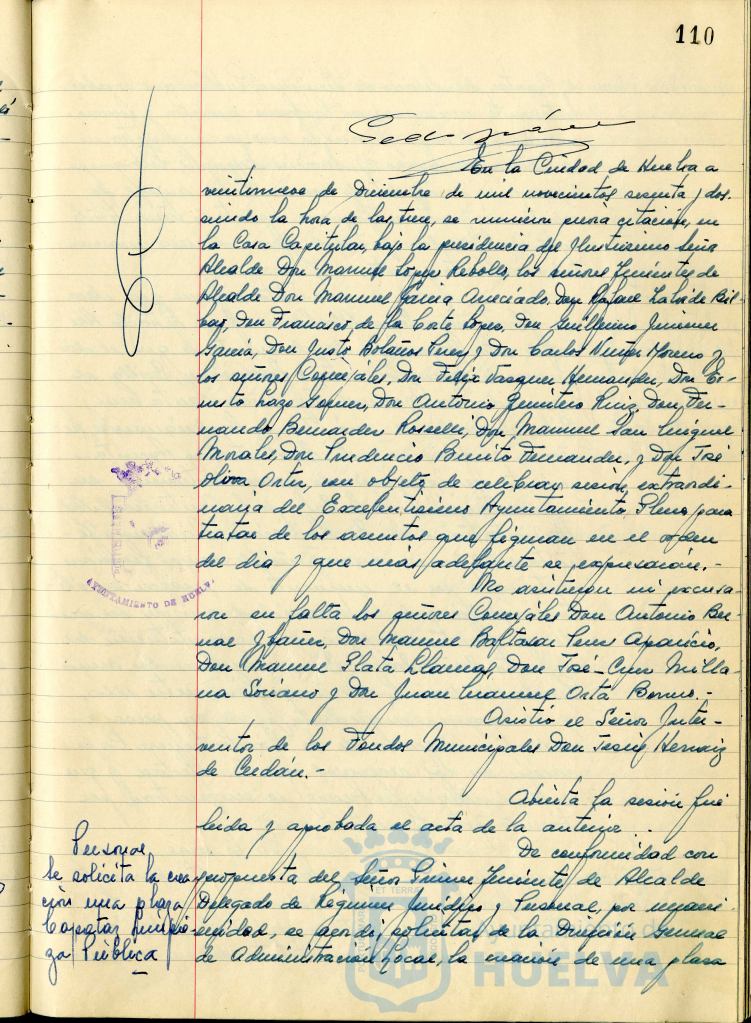 110
En la Ciudad de Huelva a
veintinueve de Diciembre de mil novecientos sesenta y dos,
siendo la hora de las trece, se reunieron previa citacion, en
la Casa Capitular, bajo la presidencia del Ilustrisimo Señor
Alcalde Don Manuel López Rebollo, los señores Tenientes de
Alcalde Don Manuel Garcia Aneciado, Don Rafael Labié de Bil-
bao, Don Francisco de la Corte Lopez, Don Guillermo Jimenez
Garcia, Don Justo Bolaños Perez y Don Carlos Núñez Moreno y
los señores Concejales, Don Felix Vazquez Hernandez, Don Er-
nesto Lazo Gomez, Don Antonio Quintero Ruiz, Don Fer-
nando Bernardez Rosselli, Don Manuel San Miguel
Morales, Don Prudencio Benito Fernandez, y Don José
Oliva Orta, con objeto de celebrar sesión extraordi-
naria del Excelentisimo Ayuntamiento Pleno para
tratar de los asuntos que figuran en el orden
del dia y que más adelante se expresarán.-
No asistieron ni excusa-
ron su falta los señores Concejales Don Antonio Ber-
nal Ybañez, Don Manuel Baltasar Perez Aparicio,
Don Manuel Plata Llamas, Don José-Cruz Milla-
na Soriano y Don Juan Manuel Orta Borrero.-
Asistió el Señor Inter-
ventor de los Fondos Municipales Don Jesús Hernaiz
de Cerdán.-
Abierta la sesión fué
leida y aprobada el acta de la anterior.
De conformidad con
propuesta del Señor Primer Teniente de Alcalde
Delegado de Régimen Juridico y Personal, por unani-
midad, se acordó solicitar de la Direccion General
de Administración Local, la creación de una plaza
Personal
Se solicita la crea-
ción una plaza
Capataz Limpie-
za Pública
AYUNTAMIENTO DE HUELVA
Ayuntamiento de
HUELVA